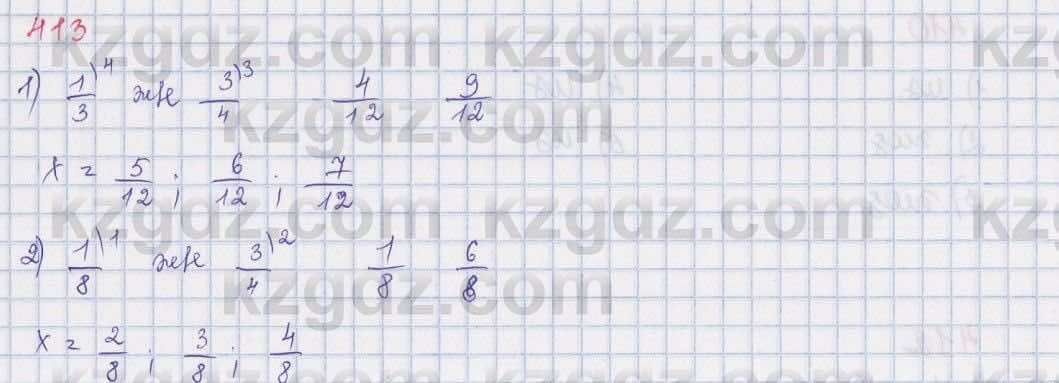 413
1) 1/3 \4 және 3/4 \3 4/12 9/12
x = 5/12 ; 6/12 ; 7/12
2) 1/8 \1 және 3/4 \2 1/8 6/8
x = 2/8 ; 3/8 ; 4/8
kzgdz.com kzgdz.com
kzgdz.com
kzgdz.com kzgdz.com
kzgdz.com
kzgdz.com kzgdz.com